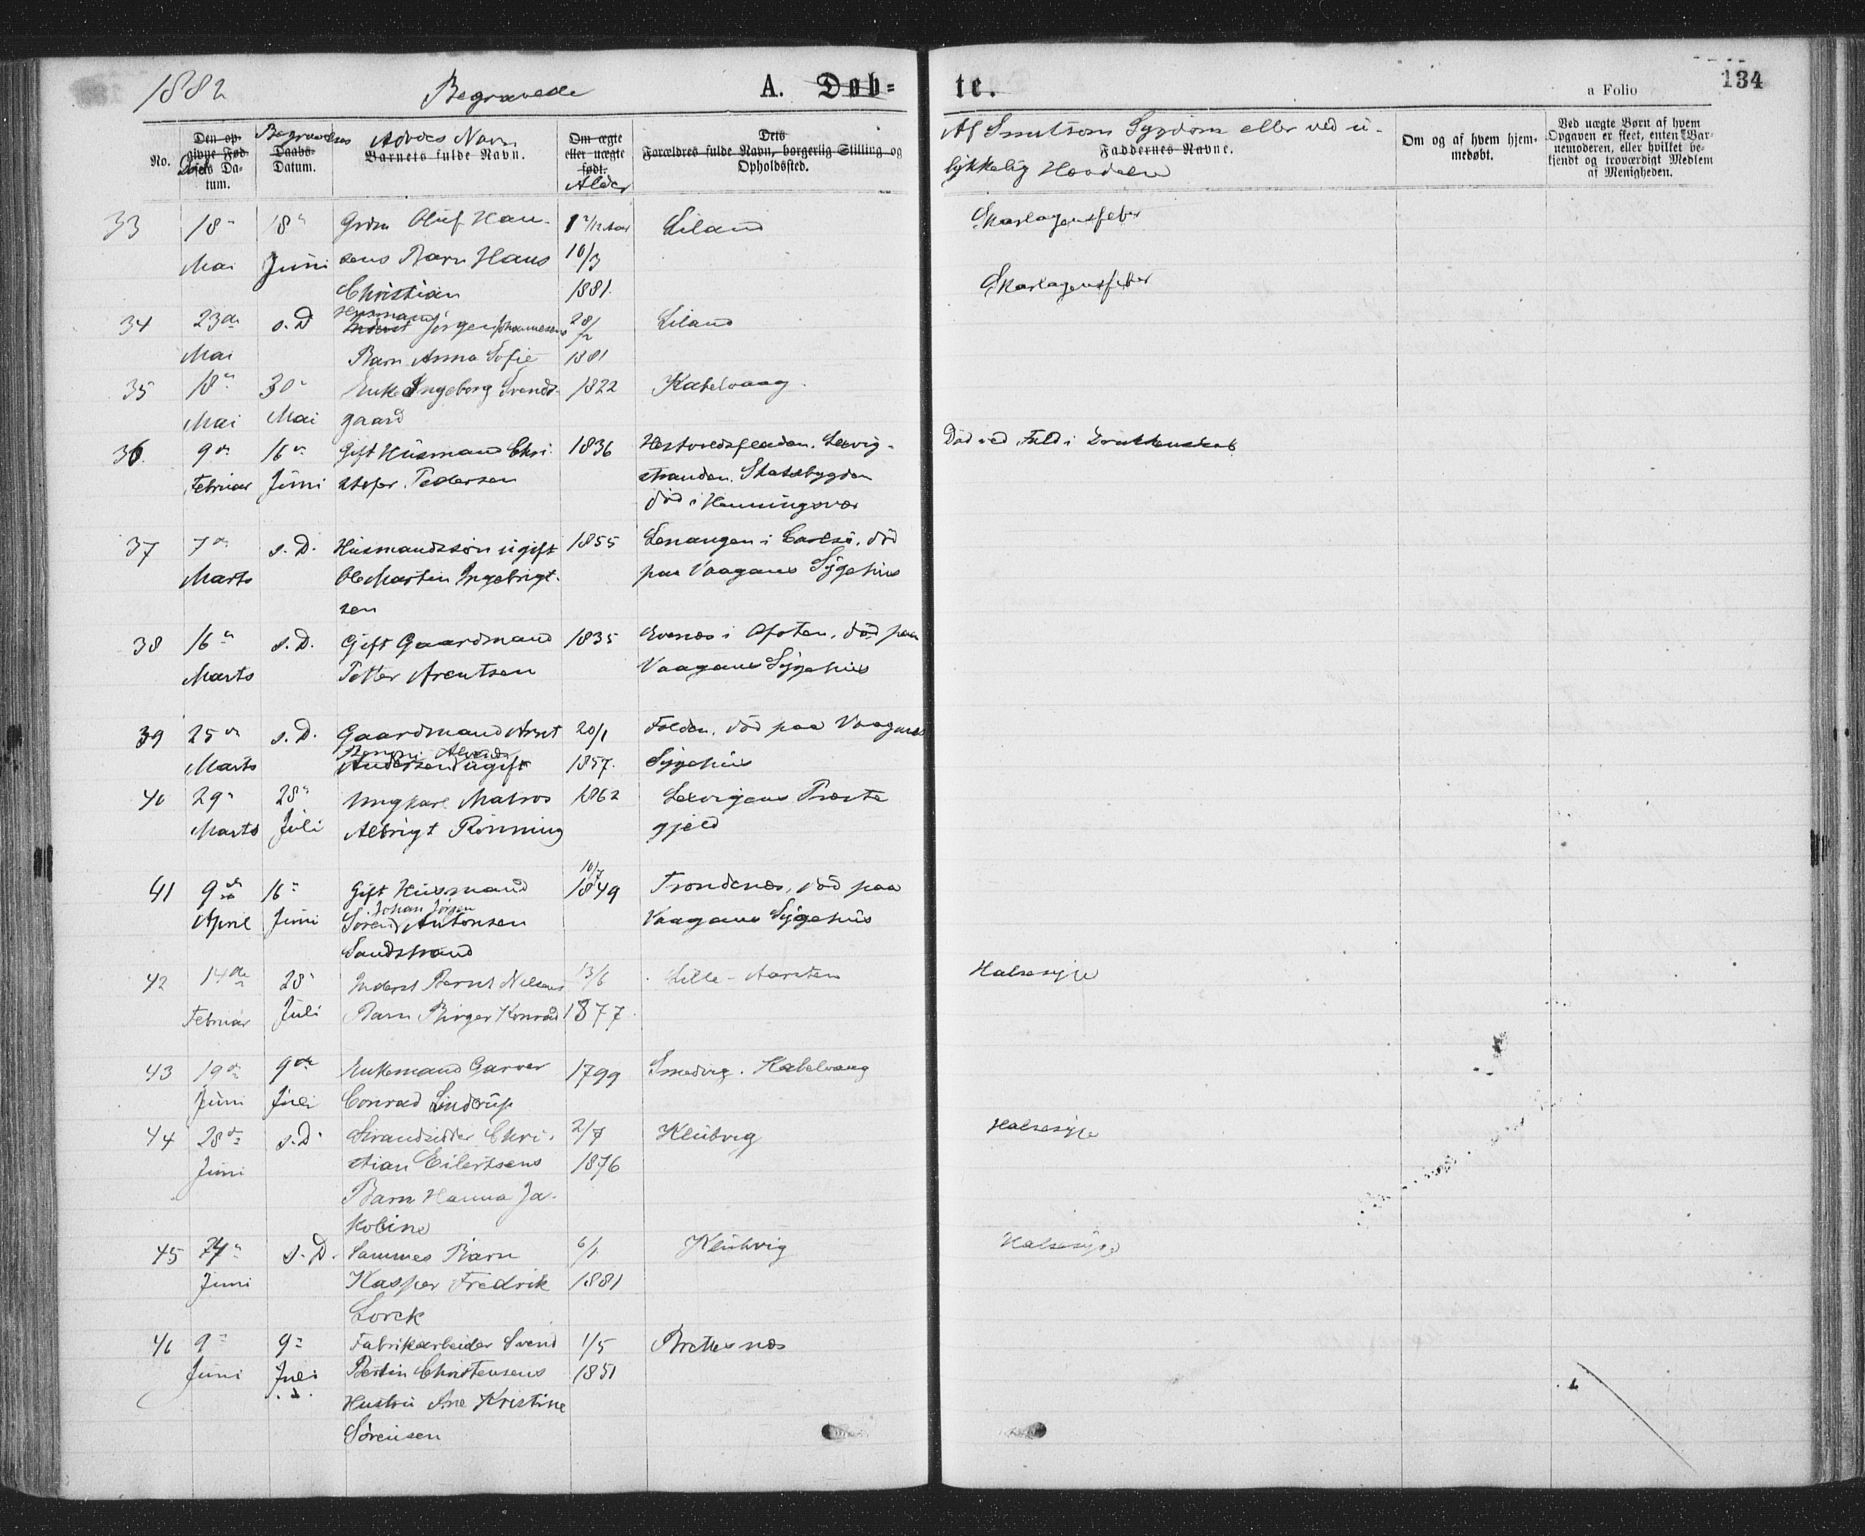 134
1882 Begravede A. Døb= te. a Folio
No.
Den op-
givne Fød-
Døds
sels Da-
tum.
Begravelses
Daabs-
Datum.
Dødes Navn
Barnets fulde Navn.
Om ægte
eller uægte
født.
Alder
Dets
Forældres fulde Navn, borgerlig Stilling og
Opholdssted.
Af Smitsom Sygdom eller ved u-
Faddernes Navne.
lykkelig Hændelse
Om og af hvem hjem-
medøbt.
Ved uægte Børn af hvem
Opgaven er skeet, enten Bar-
nemoderen, eller hvilket be-
kjendt og troværdigt Medlem
af Menigheden.
33 18de 18de Oluf Han- 1 2/12 Aar Liland Skarlagensfeber
Mai Juni sens Barn Hans 10/3
Christian 1881 Skarlagensfeber
Husmand
34 23de s.D Inderst Jørgen Johannesens 28/2 Liland
Mai Barn Anna Sofie 1881
35 18de 30de Enke Ingeborg Svends- 1822 Kabelvaag
Mai Mai gaard
36 9de 16de Gift Husmand Chri- 1836 Lexvig- Død ved Fald i Drukkenskab
Februar Juni stofer Pedersen stranden, Stadsbygden
død i Henningsvær
37 7de s.D. Husmandssøn ugift 1855 Lenangen i Carlsø, død
Marts Ole Martin Ingebrigt- paa Vaagans Sygehus
sen
38 16de s.D. Gift Gaardmand 1835 Evenæs i Ofoten, død paa
Marts Petter Arentsen Vaagans Sygehus
39 25de s.D. Gaardmand 20/1 Folden, død paa Vaagans
Marts Andersen ugift 1857. Sygehus
40 29de 28de Ungkarl Matros 1862 Lexvigens Præste
Marts Juli Albrigt Rønning gjeld
10/7
41 9de 16de Gift Husmand 1849 Trondenæs, død paa
Johan Jørgen
April Juni Søren Antonsen Vaagans Sygehus
Sandstrand
42 14de 28de Inderst Bernt Nilsens 13/6 Lille- Halssyge
Februar Juli Barn Birger Konrad 1877.
43 19de 9de Enkemand Garver 1799 Smedvig. Kabelvaag
Juni Juli Conrad Lindrup
44 28de s.D. Strandsidder Chri- 2/7 Klubvig Halssyge
Juni stian Eilertsens 1876
Barn Hanna Ja-
kobine
45 s.D. Sammes Barn 6/1 Klubvig Halssyge
Juni Kasper Fredrik 1881
Lorck
46 9de 9de Fabrikarbeider Svend 1/5 Brettesnæs
Juni Juli Bertin Christensens 1851
Hustru Ane Kristine
Sørensen